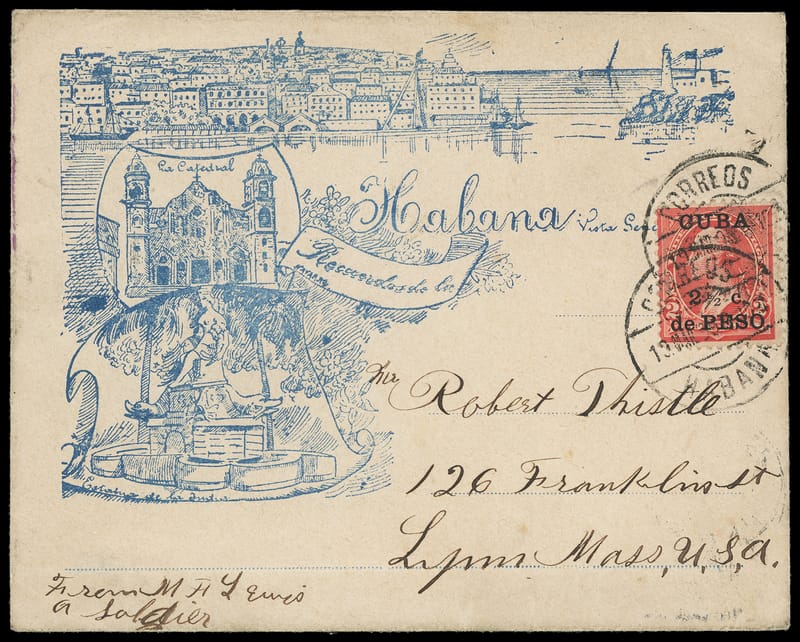 La Catedral
Habana Vista General
Recuerdos de la
Estatua de la India
CORREOS
CUBA
2½ c.
de PESO.
CORREOS
13
HABANA
Mr Robert Thistle
126 Franklin st
Lynn Mass, U, S, A.
From M A Lewis
a Soldier